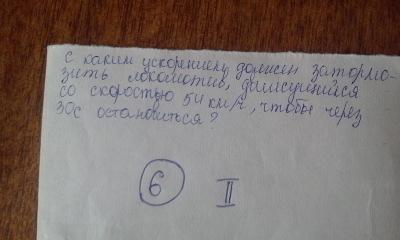 С каким ускорением должен затормо-
зить локомотив, движущийся
со скоростью 54 км/ч, чтобы через
30с остановиться?
6 II